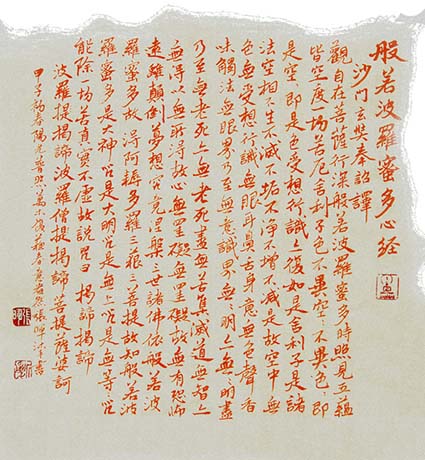 般若波羅蜜多心经
沙门玄奘奉詔譯
觀自在菩薩行深般若波羅蜜多時照見五蘊
皆空度一切苦厄舍利子色不異空〻不異色〻即
是空〻即是色受想行識亦復如是舍利子是諸
法空相不生不滅不垢不淨不增不減是故空中無
色無受想行識無眼耳鼻舌身意無色聲香
味觸法無眼界乃至無意識界無〻明亦無〻明盡
乃至無老死亦無老死盡無苦集滅道無智亦
無得以無所得故心無罣礙無罣礙故無有恐怖
遠離顛倒夢想究竟涅槃三世諸佛依般若波
羅蜜多故得阿耨多羅三藐三菩提故知般若波
羅蜜多是大神咒是大明咒是無上咒是無等〻咒
能除一切苦真實不虛故說咒曰 揭諦揭諦
波羅提揭諦波羅僧提揭諦菩提薩婆訶
甲子初春陽光普照萬木復